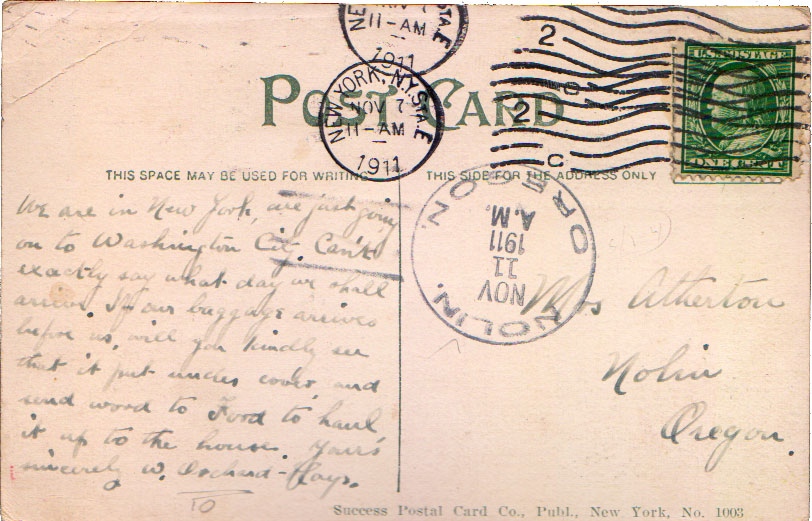 NEW YORK, N.Y. STA. E
NOV 7
11-AM
1911
2
2
C
U.S. POSTAGE
ONE CENT
POST CARD
THIS SPACE MAY BE USED FOR WRITING
THIS SIDE FOR THE ADDRESS ONLY
We are in New York, are just going
on to Washington City. Can't
exactly say what day we shall
arrive. If our baggage arrives
before us, will you kindly see
that it put under cover, and
send word to Food to haul
it up to the house. Yours
sincerely W. Orchard-Hays.
TO
NOLIN. OREGON.
NOV
11
1911
A.M.
Mrs Atherton
Nolin
Oregon.
Success Postal Card Co., Publ., New York, No. 1003